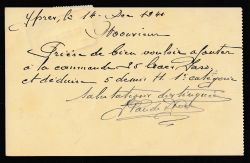 Ypres, le 14 Dec 19
Monsieur
Prière de bien vouloir ajouter
à la commande 25
et déduire 5 1e catégorie
Salutations distinguées